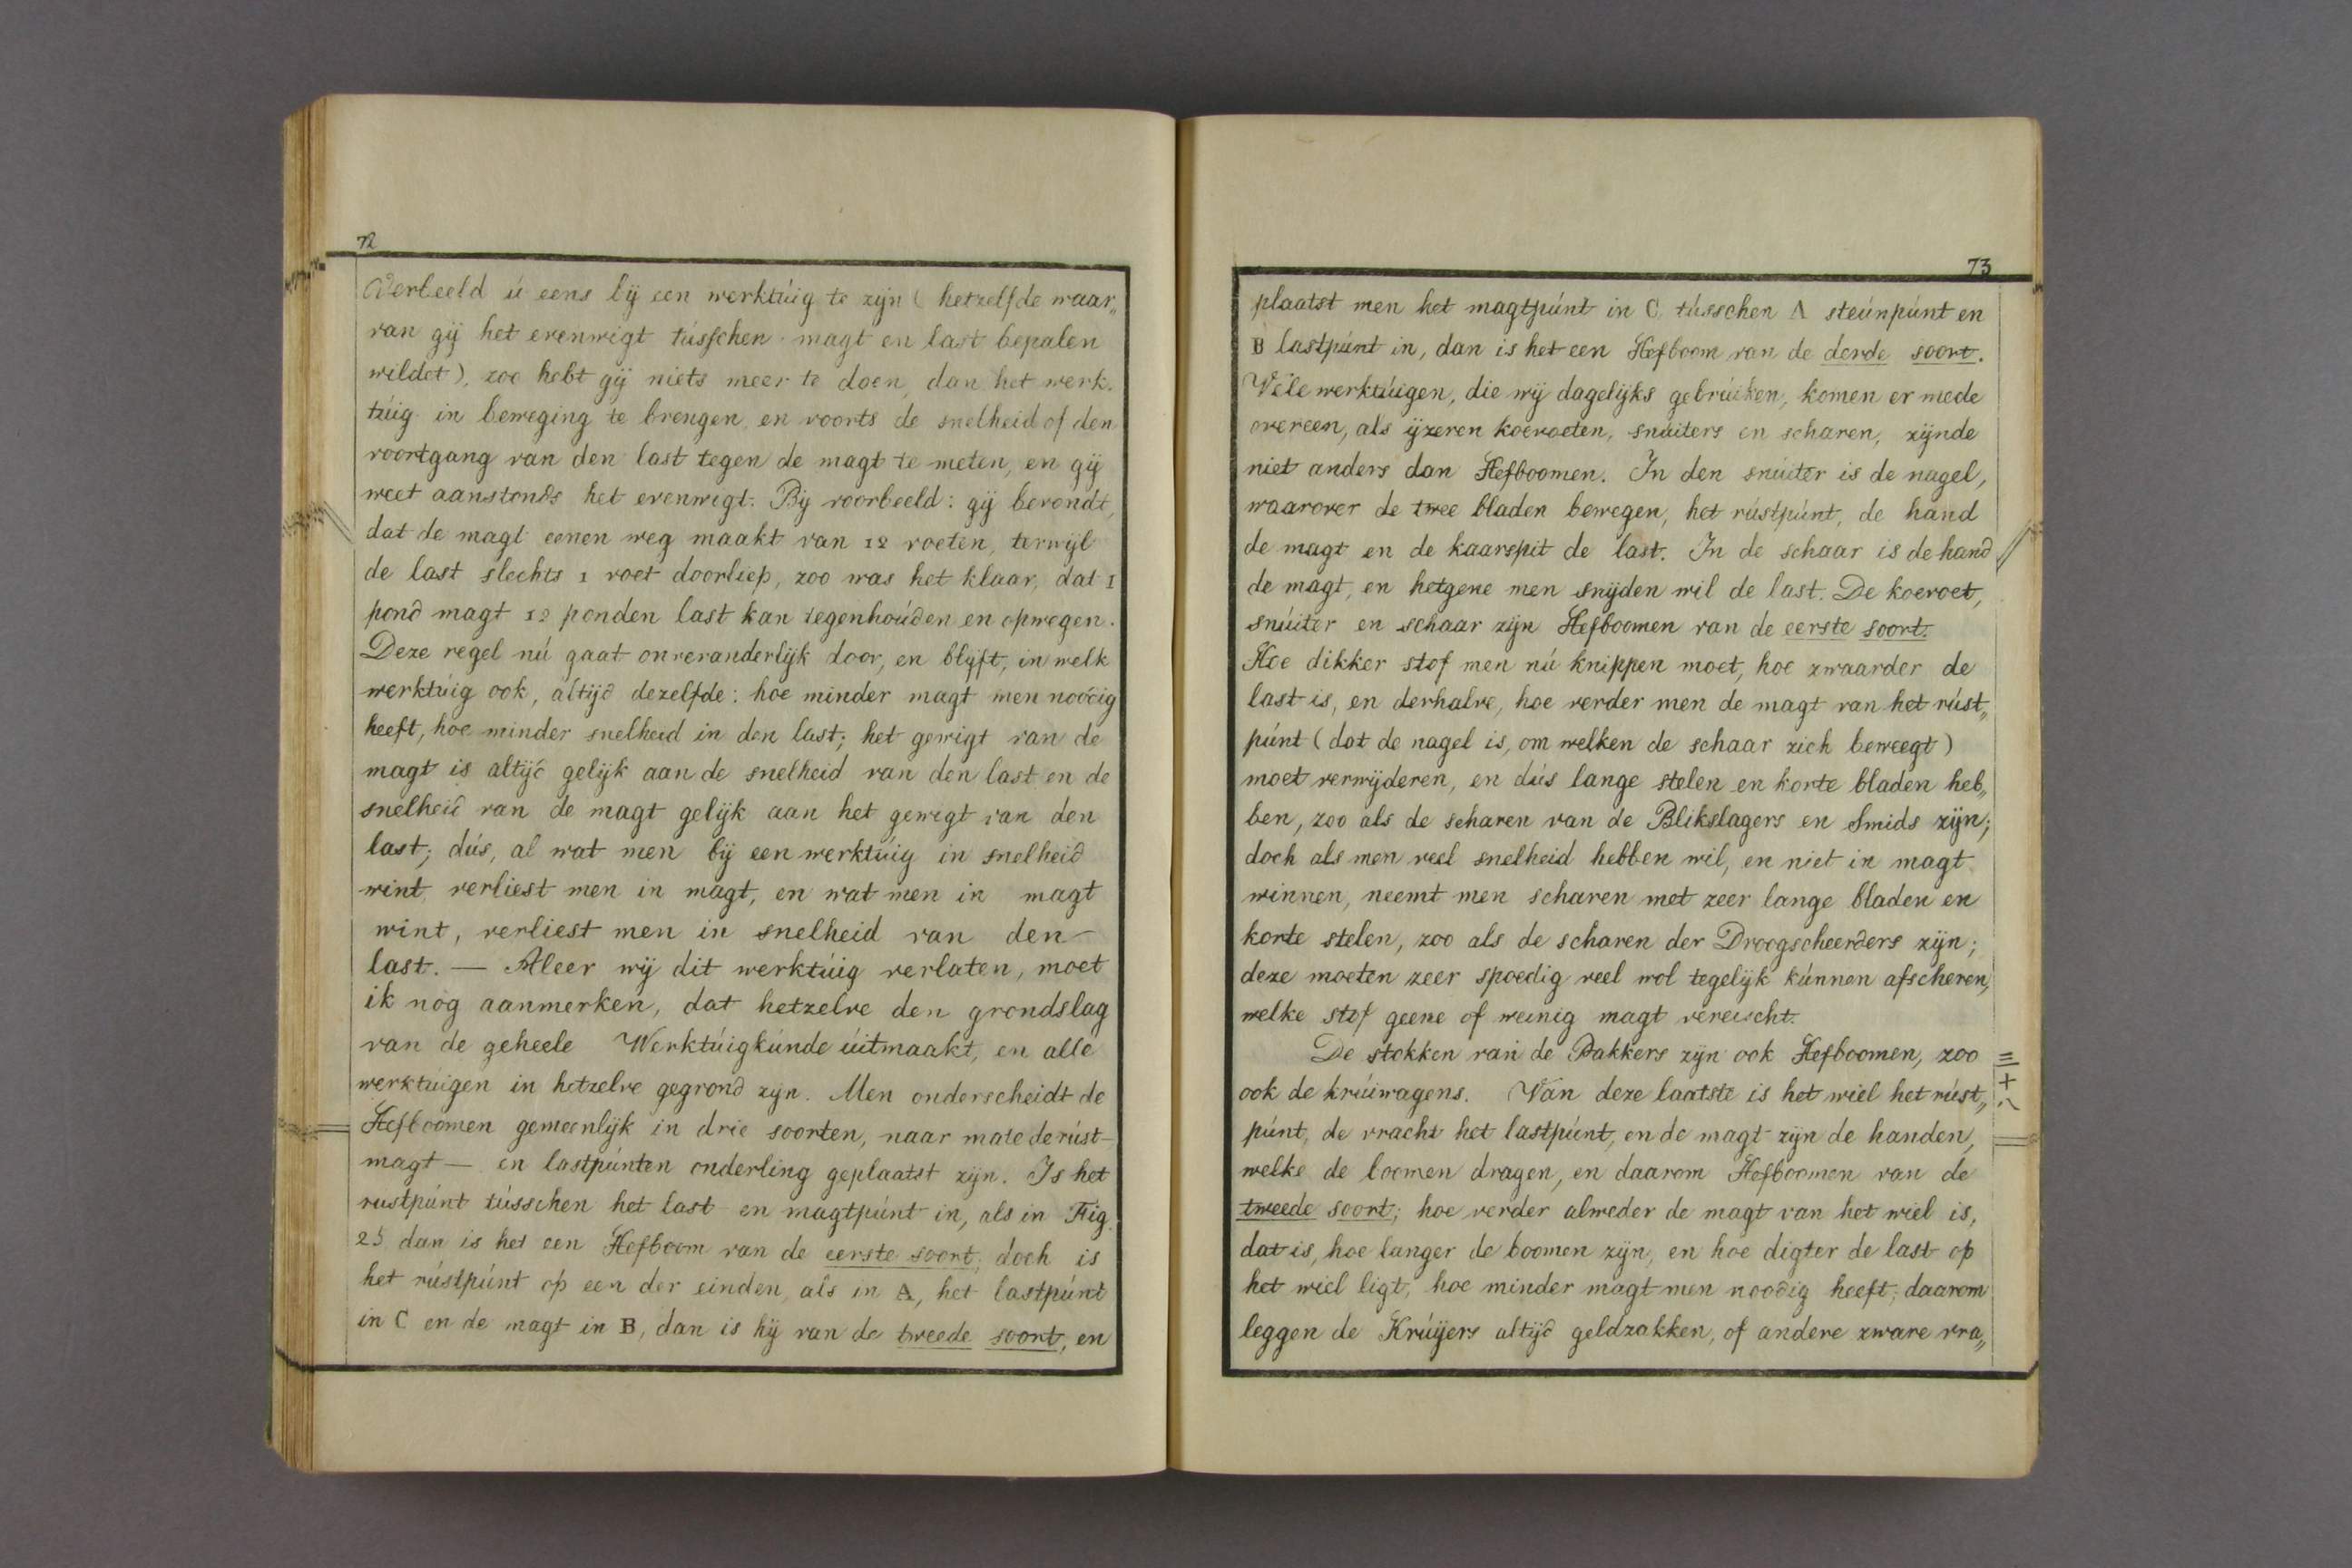 72
Verbeeld ú eens bij een werktúig te zijn (hetzelfde waar„
van gij het evenwigt tússchen magt en last bepalen
wildet), zoo hebt gij niets meer te doen, dan het werk-
túig in beweging te brengen, en voorts de snelheid of den
voortgang van den last tegen de magt te meten, en gij
weet aanstonds het evenwigt. Bij voorbeeld: gij bevondt,
dat de magt eenen weg maakt van 12 voeten, terwijl
de last slechts 1 voet doorliep, zoo was het klaar, dat 1
pond magt 12 ponden last kan tegenhoúden en opwegen.
Deze regel nú gaat onveranderlijk door, en blijft, in welk
werktúig ook, altijd dezelfde: hoe minder magt men noodig
heeft, hoe minder snelheid in den last; het gewigt van de
magt is altijd gelijk aan de snelheid van den last en de
snelheid van de magt gelijk aan het gewigt van den
last; dús, al wat men bij een werktúig in snelheid
wint, verliest men in magt, en wat men in magt
wint, verliest men in snelheid van den
last. — Aleer wij dit werktúig verlaten, moet
ik nog aanmerken, dat hetzelve den grondslag
van de geheele Werktúigkúnde úitmaakt, en alle
werktúigen in hetzelve gegrond zijn. Men onderscheidt de
Hefboomen gemeenlijk in drie soorten, naar mate de rúst-
magt — en lastpúnten onderling geplaatst zijn. Is het
rustpúnt tússchen het last en magtpúnt in, als in Fig.
25 dan is het een Hefboom van de eerste soort; doch is
het rústpúnt op een der einden, als in A, het lastpúnt
in C en de magt in B, dan is hij van de tweede soort, en
73
plaatst men het magtpúnt in C, tússchen A steúnpúnt en
B lastpúnt in, dan is het een Hefboom van de derde soort.
Vele werktúigen, die wij dagelijks gebrúiken, komen er mede
overeen, als ijzeren koevoeten, snúiters en scharen, zijnde
niet anders dan Hefboomen. In den snúiter is de nagel,
waarover de twee bladen bewegen, het rústpúnt, de hand
de magt en de kaarspit de last. In de schaar is de hand
de magt, en hetgene men snijden wil de last. De koevoet,
snúiter en schaar zijn Hefboomen van de eerste soort.
Hoe dikker stof men nú knippen moet, hoe zwaarder de
last is, en derhalve, hoe verder men de magt van het rúst„
púnt (dat de nagel is, om welken de schaar zich beweegt)
moet verwijderen, en dús lange stelen en korte bladen heb„
ben, zoo als de scharen van de Blikslagers en Smids zijn;
doch als men veel snelheid hebben wil, en niet in magt
winnen, neemt men scharen met zeer lange bladen en
korte stelen, zoo als de scharen der Droogscheerders zijn;
deze moeten zeer spoedig veel wol tegelijk kúnnen afscheren,
welke stof geene of weinig magt vereischt.
De stokken van de Bakkers zijn ook Hefboomen, zoo
ook de krúiwagens. Van deze laatste is het wiel het rúst„
púnt, de vracht het lastpúnt, en de magt zijn de handen,
welke de boomen dragen, en daarom Hefboomen van de
tweede soort; hoe verder alweder de magt van het wiel is,
dat is, hoe langer de boomen zijn, en hoe digter de last op
het wiel ligt, hoe minder magt men noodig heeft; daarom
leggen de Krúijers altijd geldzakken, of andere zware vra„